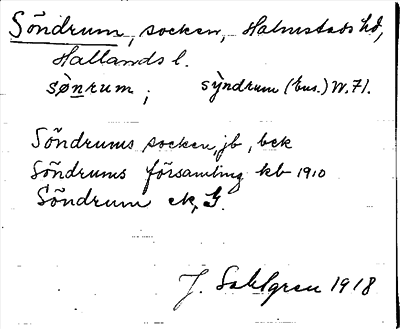 Söndrum, socken, Halmstads hd,
Hallands l.
sø̀nrum; sỳndrum (bus.) W. 71.
Söndrums socken, jb, bek
Söndrums församling kb 1910
Söndrum ek, G.
J. Sahlgren 1918